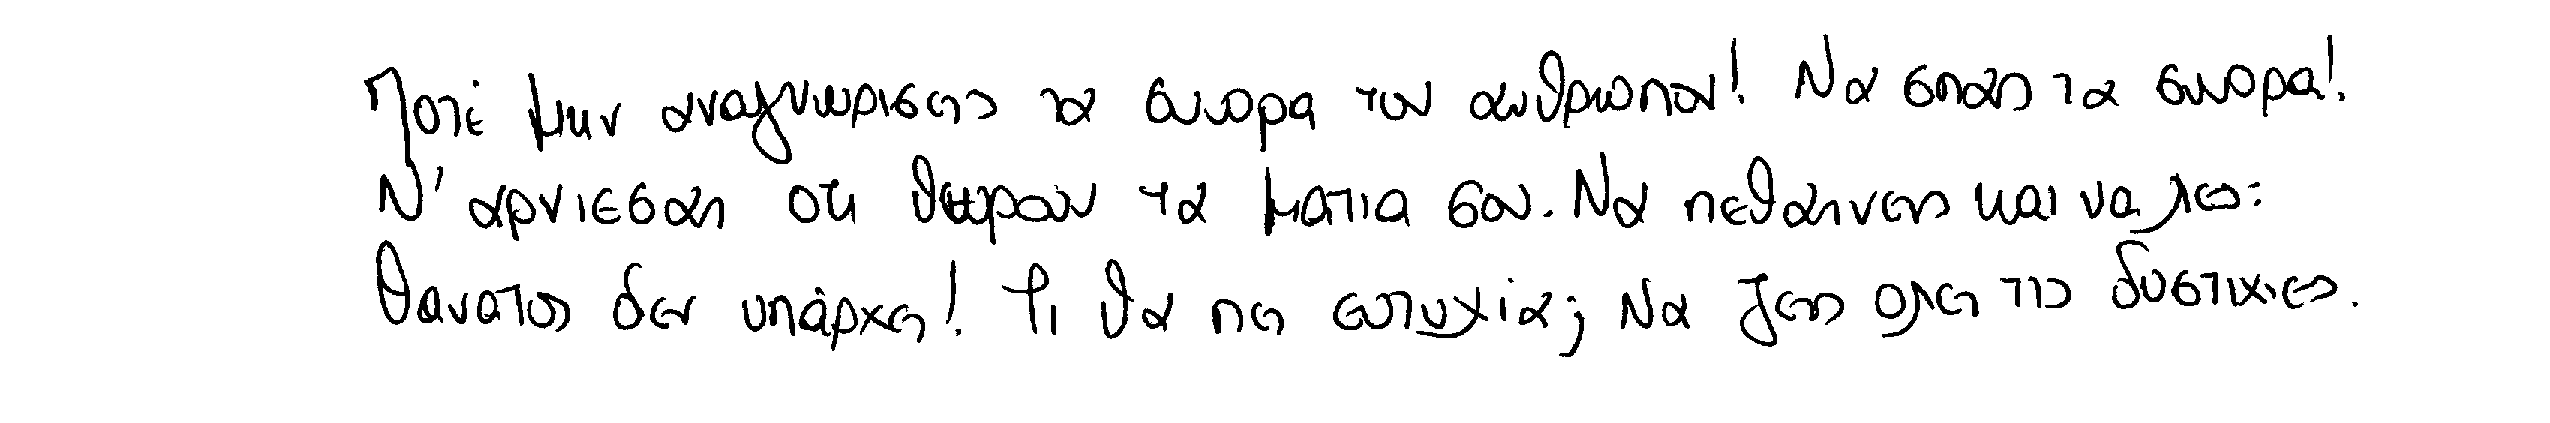 Ποτέ μην αναγνωρισεις τα συνορα του ανθρωπου! Να σπας τα συνορα!
Ν' αρνιεσαι οτι θωρουν τα ματια σου. Να πεθαινεις και να λες:
Θανατος δεν υπάρχει! Τι θα πει ευτυχία; Να ζεις ολες τις δυστιχιες.